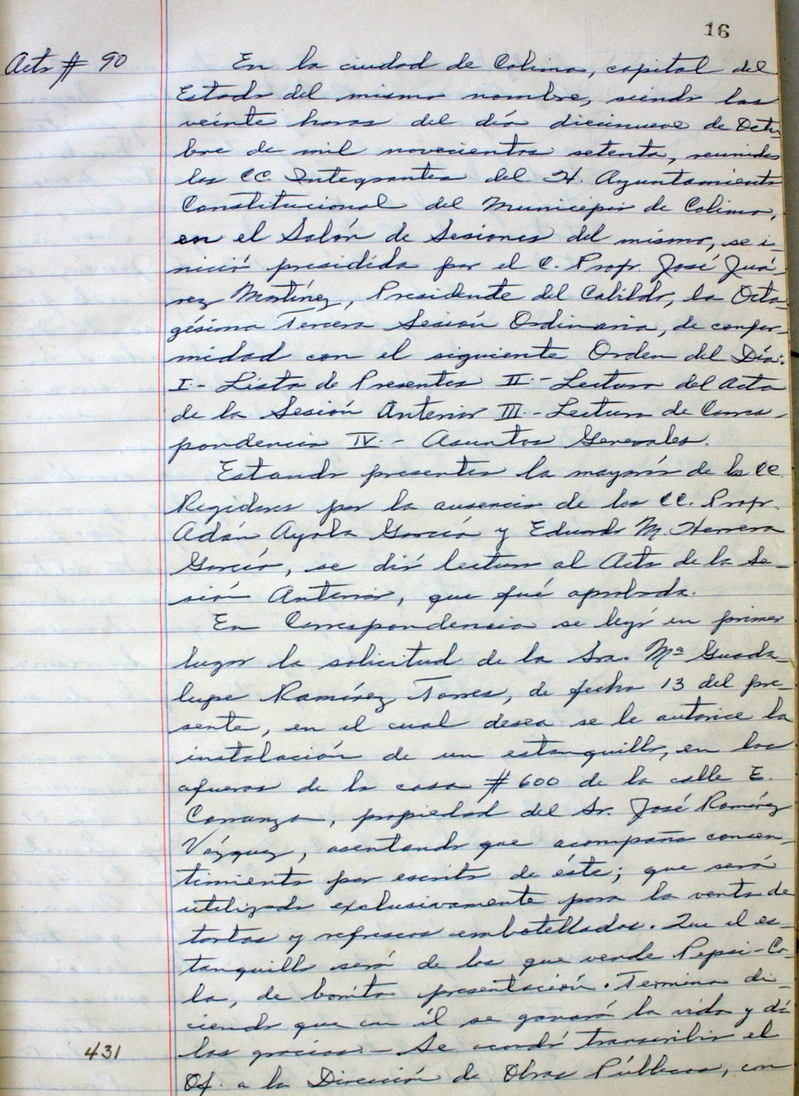 16
Acta # 90
En la ciudad de Colima, capital del
Estado del mismo nombre, siendo las
veinte horas del día diecinueve de Octu-
bre de mil novecientos setenta, reunidos
los CC. Integrantes del H. Ayuntamiento
Constitucional del Municipio de Colima,
en el Salón de Sesiones del mismo, se i-
nició presidida por el C. Profr. José Juá-
rez Martínez, Presidente del Cabildo, la Octa-
gésima Tercera Sesión Ordinaria, de confor-
midad con el siguiente Orden del Día:
I.- Lista de Presentes II.- Lectura del Acta
de la Sesión Anterior III.- Lectura de Corres-
pondencia IV.- Asuntos Generales.
Estando presentes la mayoría de los CC.
Regidores por la ausencia de los CC. Profr.
Adán Ayala García y Eduardo M. Herrera
García, se dió lectura al Acta de la Se-
sión Anterior, que fué aprobada.
En Correspondencia se leyó en primer
lugar la solicitud de la Sra. Mª Guada-
lupe Ramírez Torres, de fecha 13 del pre-
sente, en el cual desea se le autorice la
instalación de un estanquillo, en las
afueras de la casa # 600 de la calle E.
Carranza, propiedad del Sr. José Ramírez
Vázquez, asentando que acompaña concen-
timiento por escrito de éste; que será
utilizado exclusivamente para la venta de
tortas y refrescos embotellados. Que el es-
tanquillo será de los que vende Pepsi-Co-
la, de bonita presentación. Termina di-
ciendo que en él se ganará la vida y dá
las gracias.- Se acordó transcribir el
Of. a la Dirección de Obras Públicas, con
431